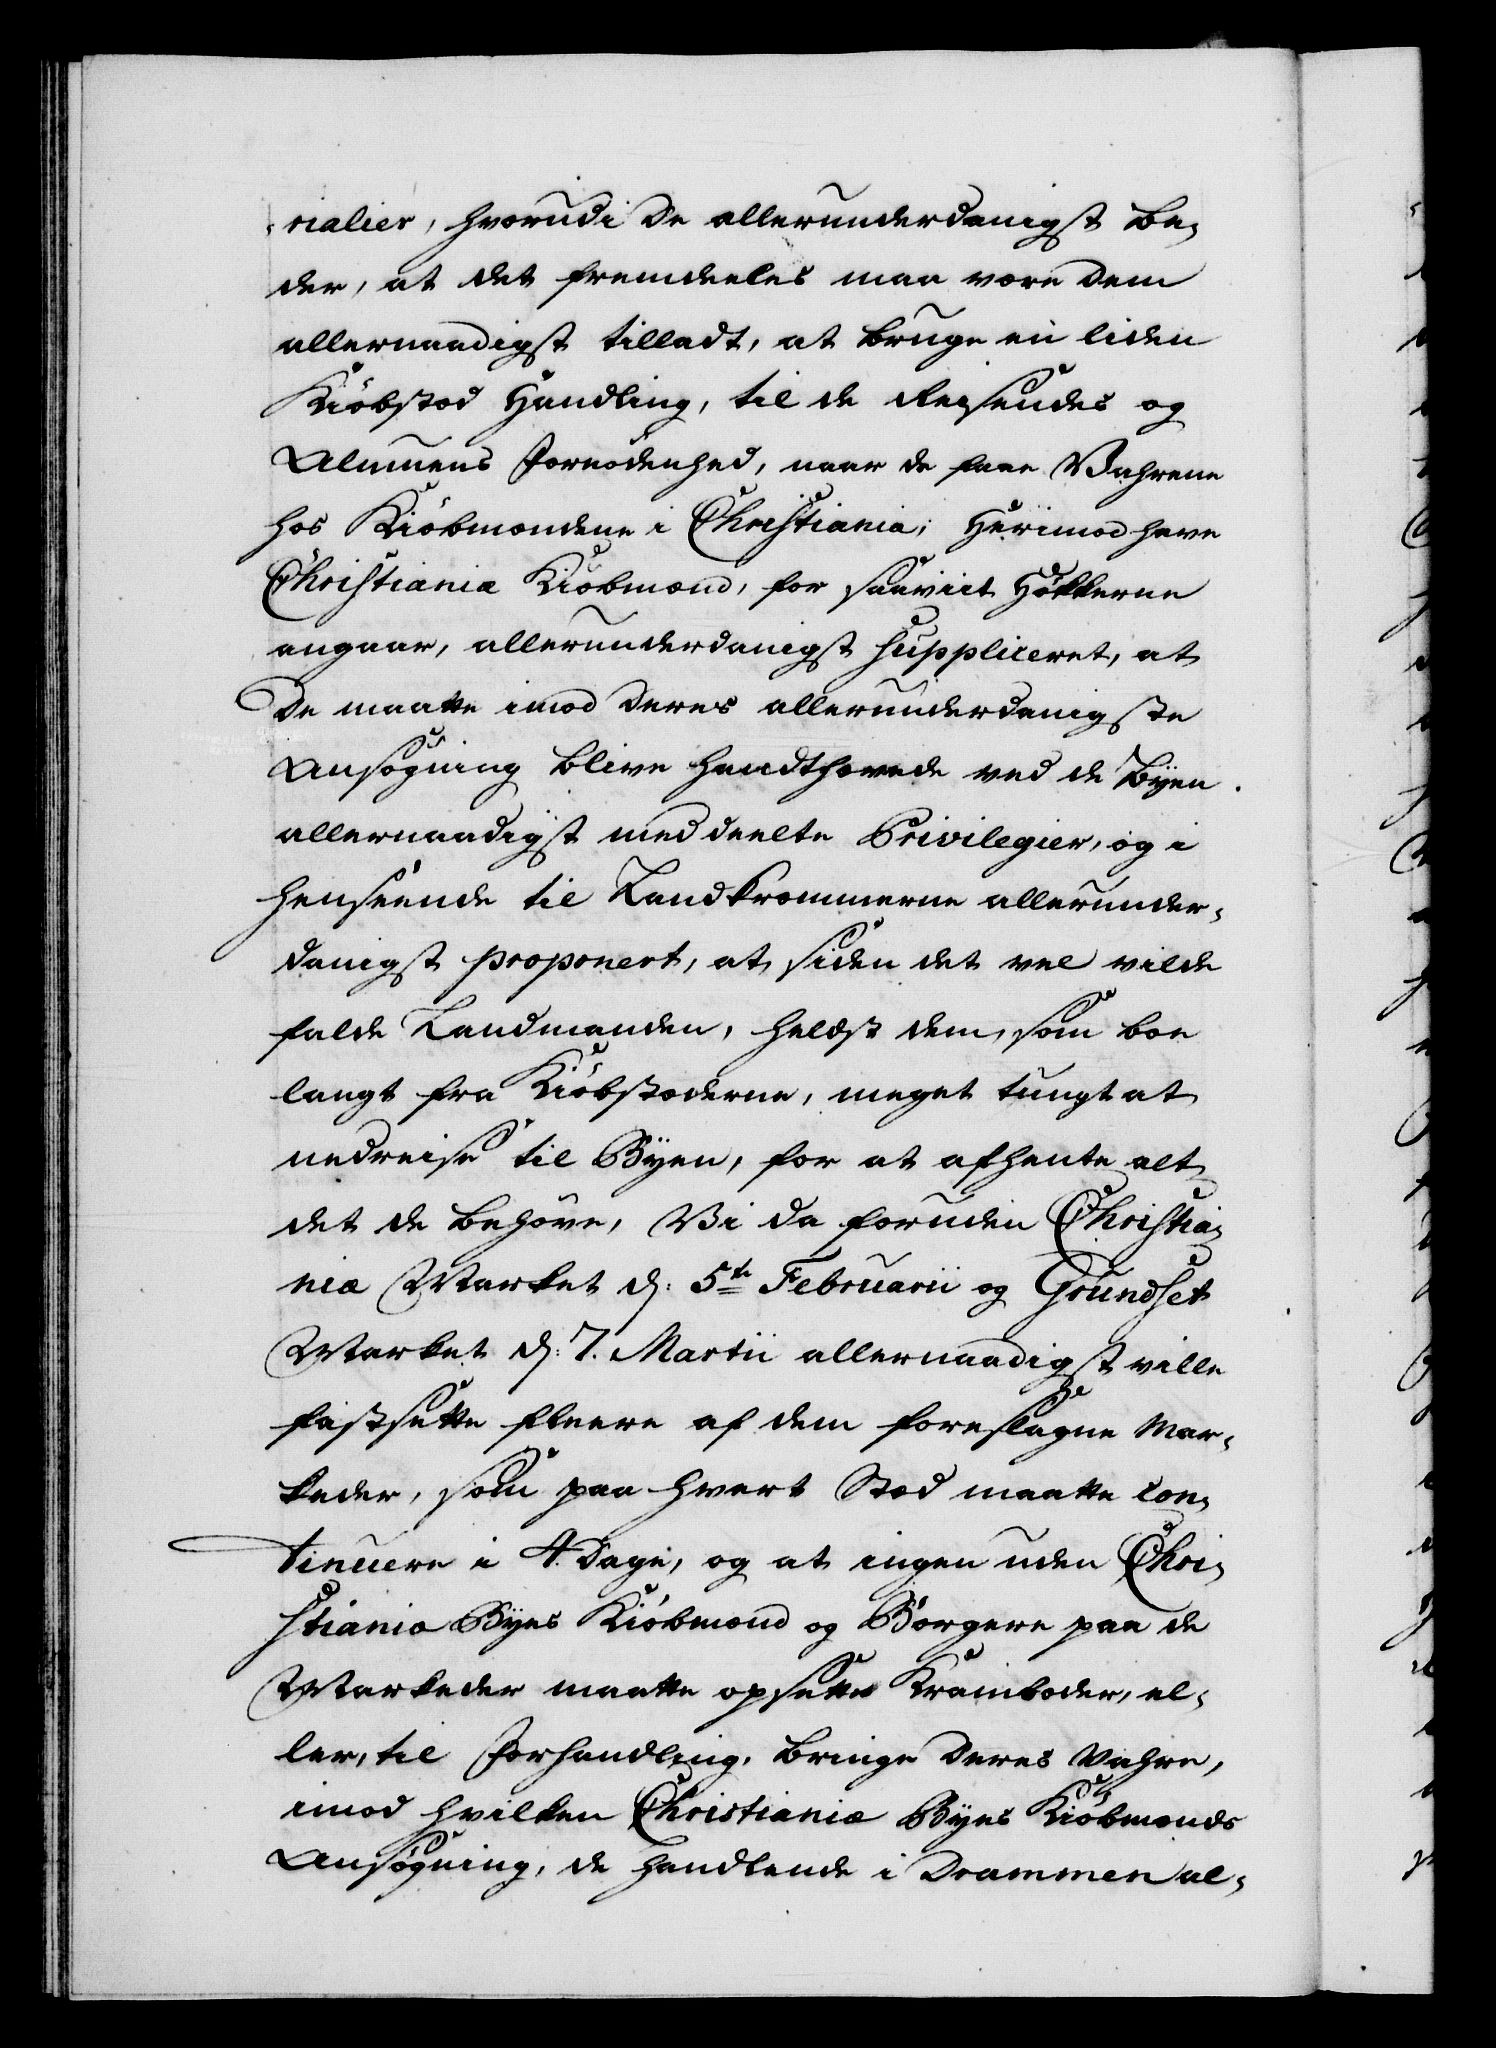 rialier, hvorudi De allerunderdanigst be-
der, at det fremdeeles maa være dem
allernaadigst tilladt, at bruge en liden
Kiöbstæd Handling, til de Reisendes og
Almuens Fornödenhed, naar de faae Vahrene
hos Kiöbmændene i Christiania; Herimod have
Christianiæ Kiöbmænd, for saavit Hökkerne
angaar, allerunderdanigst suppliceret, at
De maatte imod Deres allerunderdanigste
Ansögning blive handthævede ved de Byen
allernaadigst meddeelte Privilegier, og i
henseende til Landkræmmerne allerunder-
danigst proponert, at, siden det vel vilde
falde Landmanden, heldst dem, som boe
langt fra Kiöbstæderne, meget tungt at
nedreise til Byen, for at afhente alt
det de behöve, Vi da foruden Christia-
niæ Market d: 5te Februarii og Grundset
Market d: 7. Martii allernaadigst ville
fastsætte fleere af dem foreslagne Mar-
keder, som paa hvert Stæd maatte con-
tinuere i 4. Dage, og at ingen uden Chri-
stiania Byes Kiöbmænd og Borgere paa de
Markeder maatte opsætte Kramboder, el-
ler, til Forhandling, bringe Deres Vahre,
imod hvilken Christianiæ Byes Kiöbmænds
Ansögning, de Handlende i Drammen al-